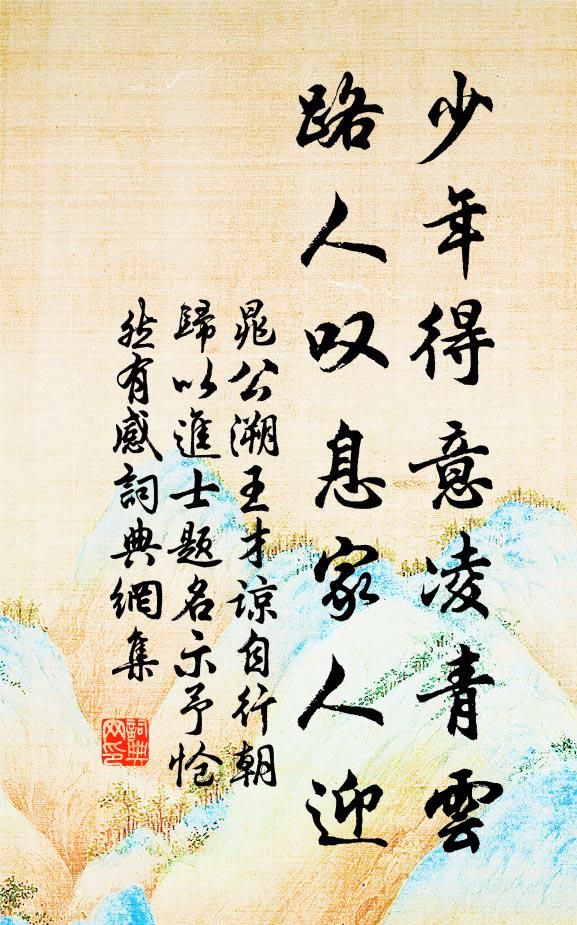 少年得意凌青雲
路人叹息家人迎
晁公溯王才谅自行朝
歸以進士題名示予怆
然有感詞典網集
詞典網印